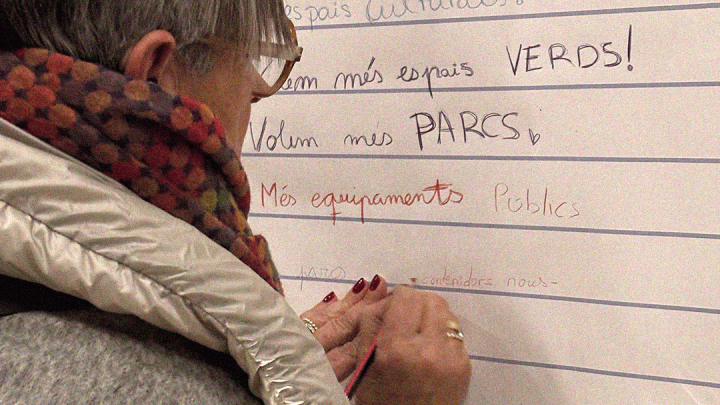 espais culturals.
més espais VERDS!
Volem més PARCS
Més equipaments Públics
contenidors nous-